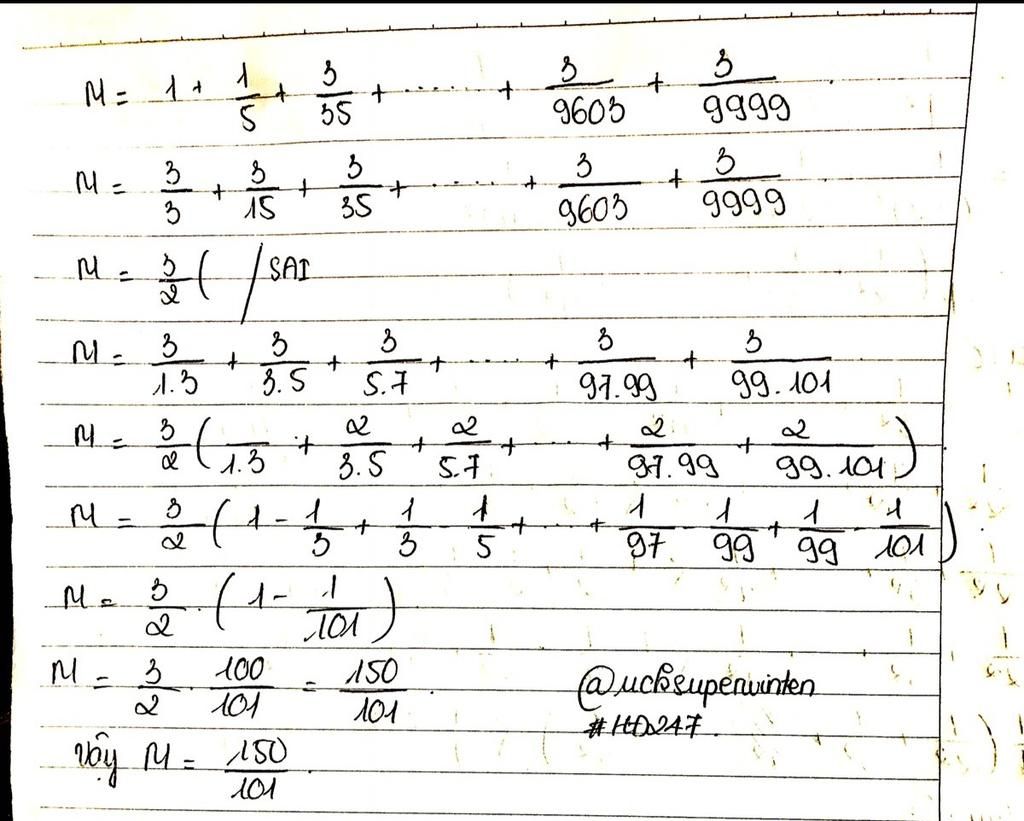 M = 1 + 1/5 + 3/35 + ...... + 3/9603 + 3/9999
M = 3/3 + 3/15 + 3/35 + ...... + 3/9603 + 3/9999
M = 3/2 ( / SAI
M = 3/1.3 + 3/3.5 + 3/5.7 + ...... + 3/97.99 + 3/99.101
M = 3/2 ( /1.3 + 2/3.5 + 2/5.7 + ..... + 2/97.99 + 2/99.101 )
M = 3/2 ( 1 - 1/3 + 1/3 - 1/5 + ..... + 1/97 - 1/99 + 1/99 - 1/101 )
M = 3/2 . ( 1 - 1/101 )
M = 3/2 . 100/101 = 150/101
Vậy M = 150/101
#HD247